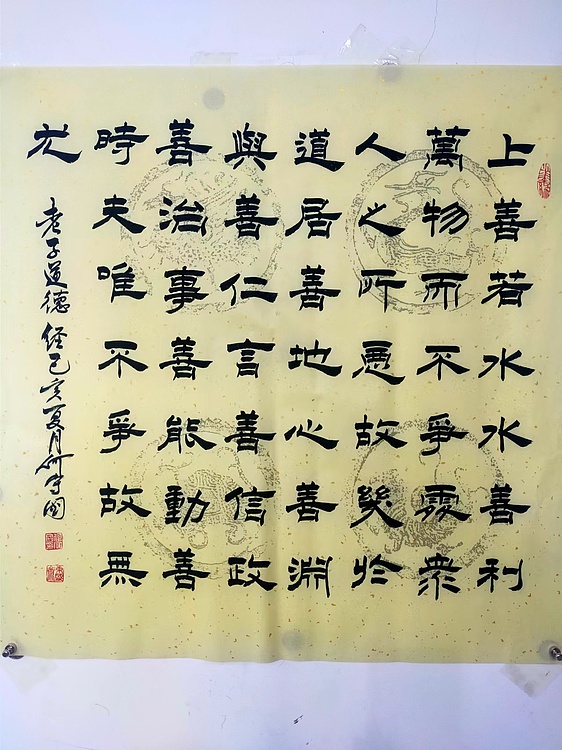 上善若水水善利
萬物而不爭處衆
人之所惡故幾於
道居善地心善淵
與善仁言善信政
善治事善能動善
時夫唯不爭故無
尤
老子道德經己亥夏月